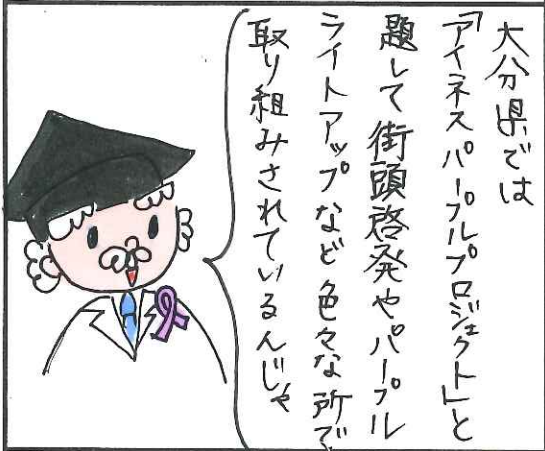 大分県では
「アイネスパープルプロジェクト」と
題して街頭啓発やパープル
ライトアップなど色々な所で
取り組みされているんじゃ